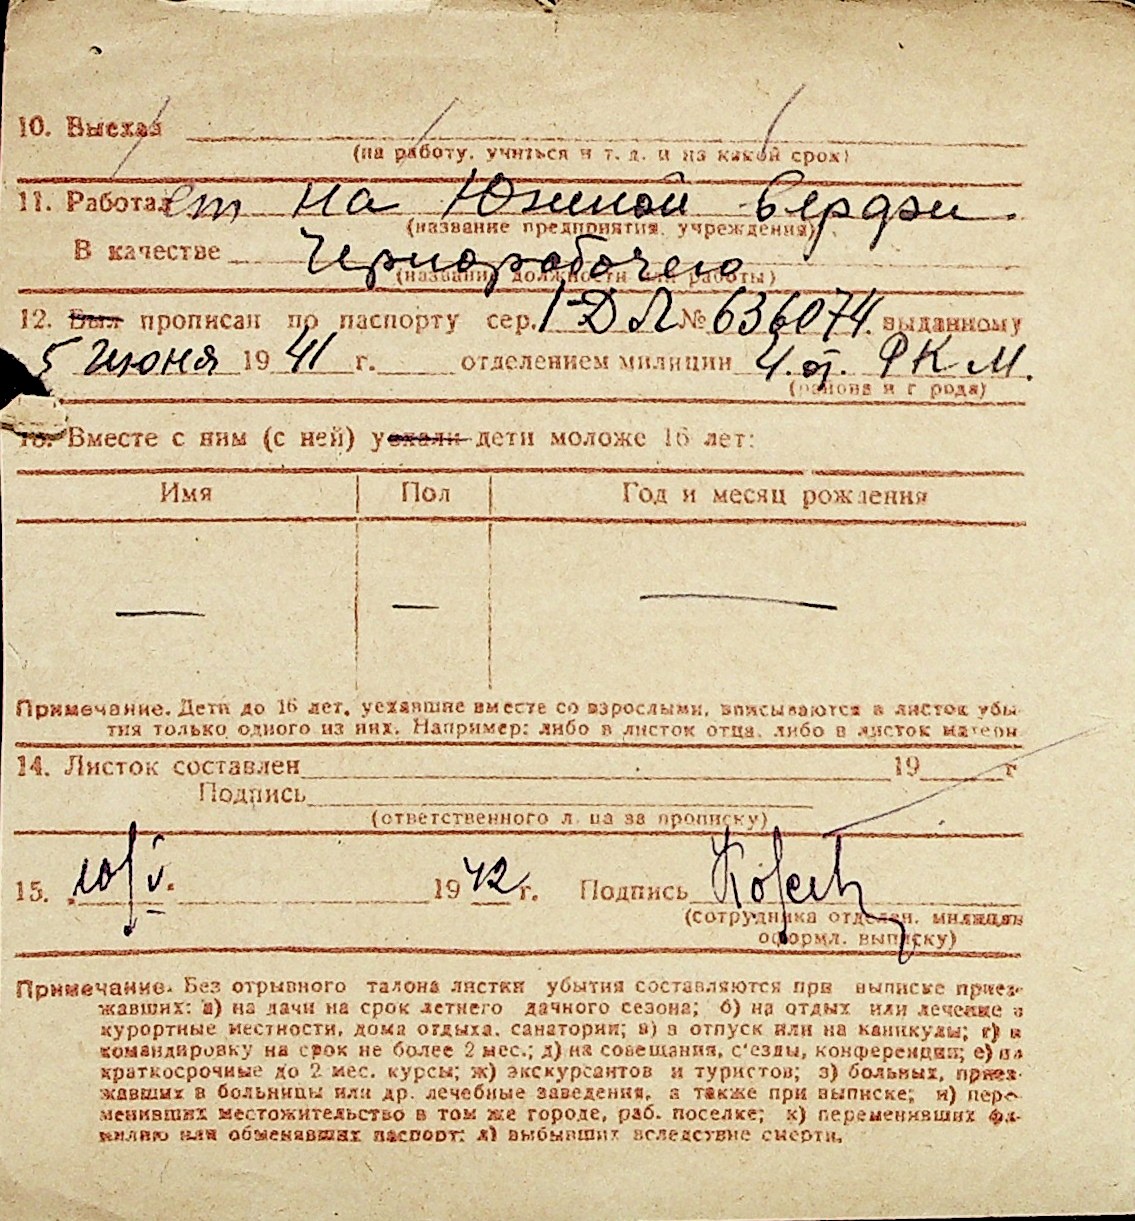 10. Выехал
(на работу, учиться и т. д. и на какой срок)
11. Работает на Южной верфи.
(название предприятия, учреждения)
В качестве Чернорабочего
(название должности или работы)
12. Был прописан по паспорту сер. I-ДЛ № 636074 выданному
5 июня 1941 г. отделением милиции 4. от. РКМ.
(района и города)
13. Вместе с ним (с ней) уехали дети моложе 16 лет:
Имя Пол Год и месяц рождения
— — —
Примечание. Дети до 16 лет, уехавшие вместе со взрослыми, вписываются в листок убы-
тия только одного из них. Например: либо в листок отца, либо в листок матери
14. Листок составлен 19 г
Подпись
(ответственного лица за прописку)
15. 10/V. 1942 г. Подпись
(сотрудника отделен. милиции
оформл. выписку)
Примечание. Без отрывного талона листки убытия составляются при выписке приез-
жавших: а) на дачи на срок летнего дачного сезона; б) на отдых или лечение в
курортные местности, дома отдыха, санатории; в) в отпуск или на каникулы; г) в
командировку на срок не более 2 мес.; д) на совещания, с'езды, конференции; е) на
краткосрочные до 2 мес. курсы; ж) экскурсантов и туристов; з) больных, приез-
жавших в больницы или др. лечебные заведения, а также при выписке; и) пере-
менивших местожительство в том же городе, раб. поселке; к) переменивших фа-
милию или обменявших паспорт; л) выбывших вследствие смерти.